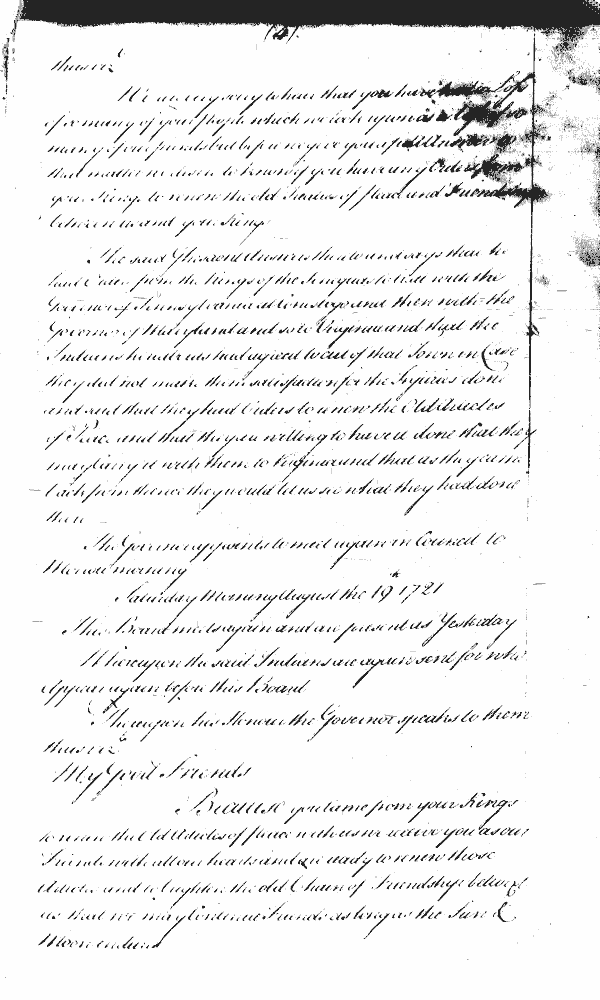 (4)
thus viz.
We are very sorry to hear that you have had the Loss
of so many of your people which we look upon as a Loss
many of our friends but before we give you a full Answer to
that matter we desire to know if you have any Orders from
your Kings to renew the old Leagues of Peace and Friendship
between us and your Kings
The said Ghesaont Answers thereto and says that he
had Orders from the Kings of the Senequas to treat with the
Governor of Pennsylvania at Conestogo and then with the
Governor of Maryland and so to Virginia and that the
Indians hundreds had agreed to out of that Town in Case
they did not make them satisfaction for the Injuries done
and said that they had Orders to renew the Old Articles
of Peace and that they are willing to have it done that they
may carry it with them to Virginia and that as they came
back from thence they would let us see what they had done
there
The Governor appoints to meet again in Council to
Morrow morning
Saturday Morning August the 19th 1721
This Board meets again and are present as Yesterday
Whereupon the said Indians are again sent for who
Appear again before this Board
Thereupon his Honour the Governor speaks to them
thus viz.
My Good Friends
Because you came from your Kings
to renew the Old Articles of Peace with us we receive you as our
Friends with all our hearts and are ready to renew those
Articles and to brighten the old Chain of Friendship between
us that we may Continue Friends as long as the Sun &
Moon endures